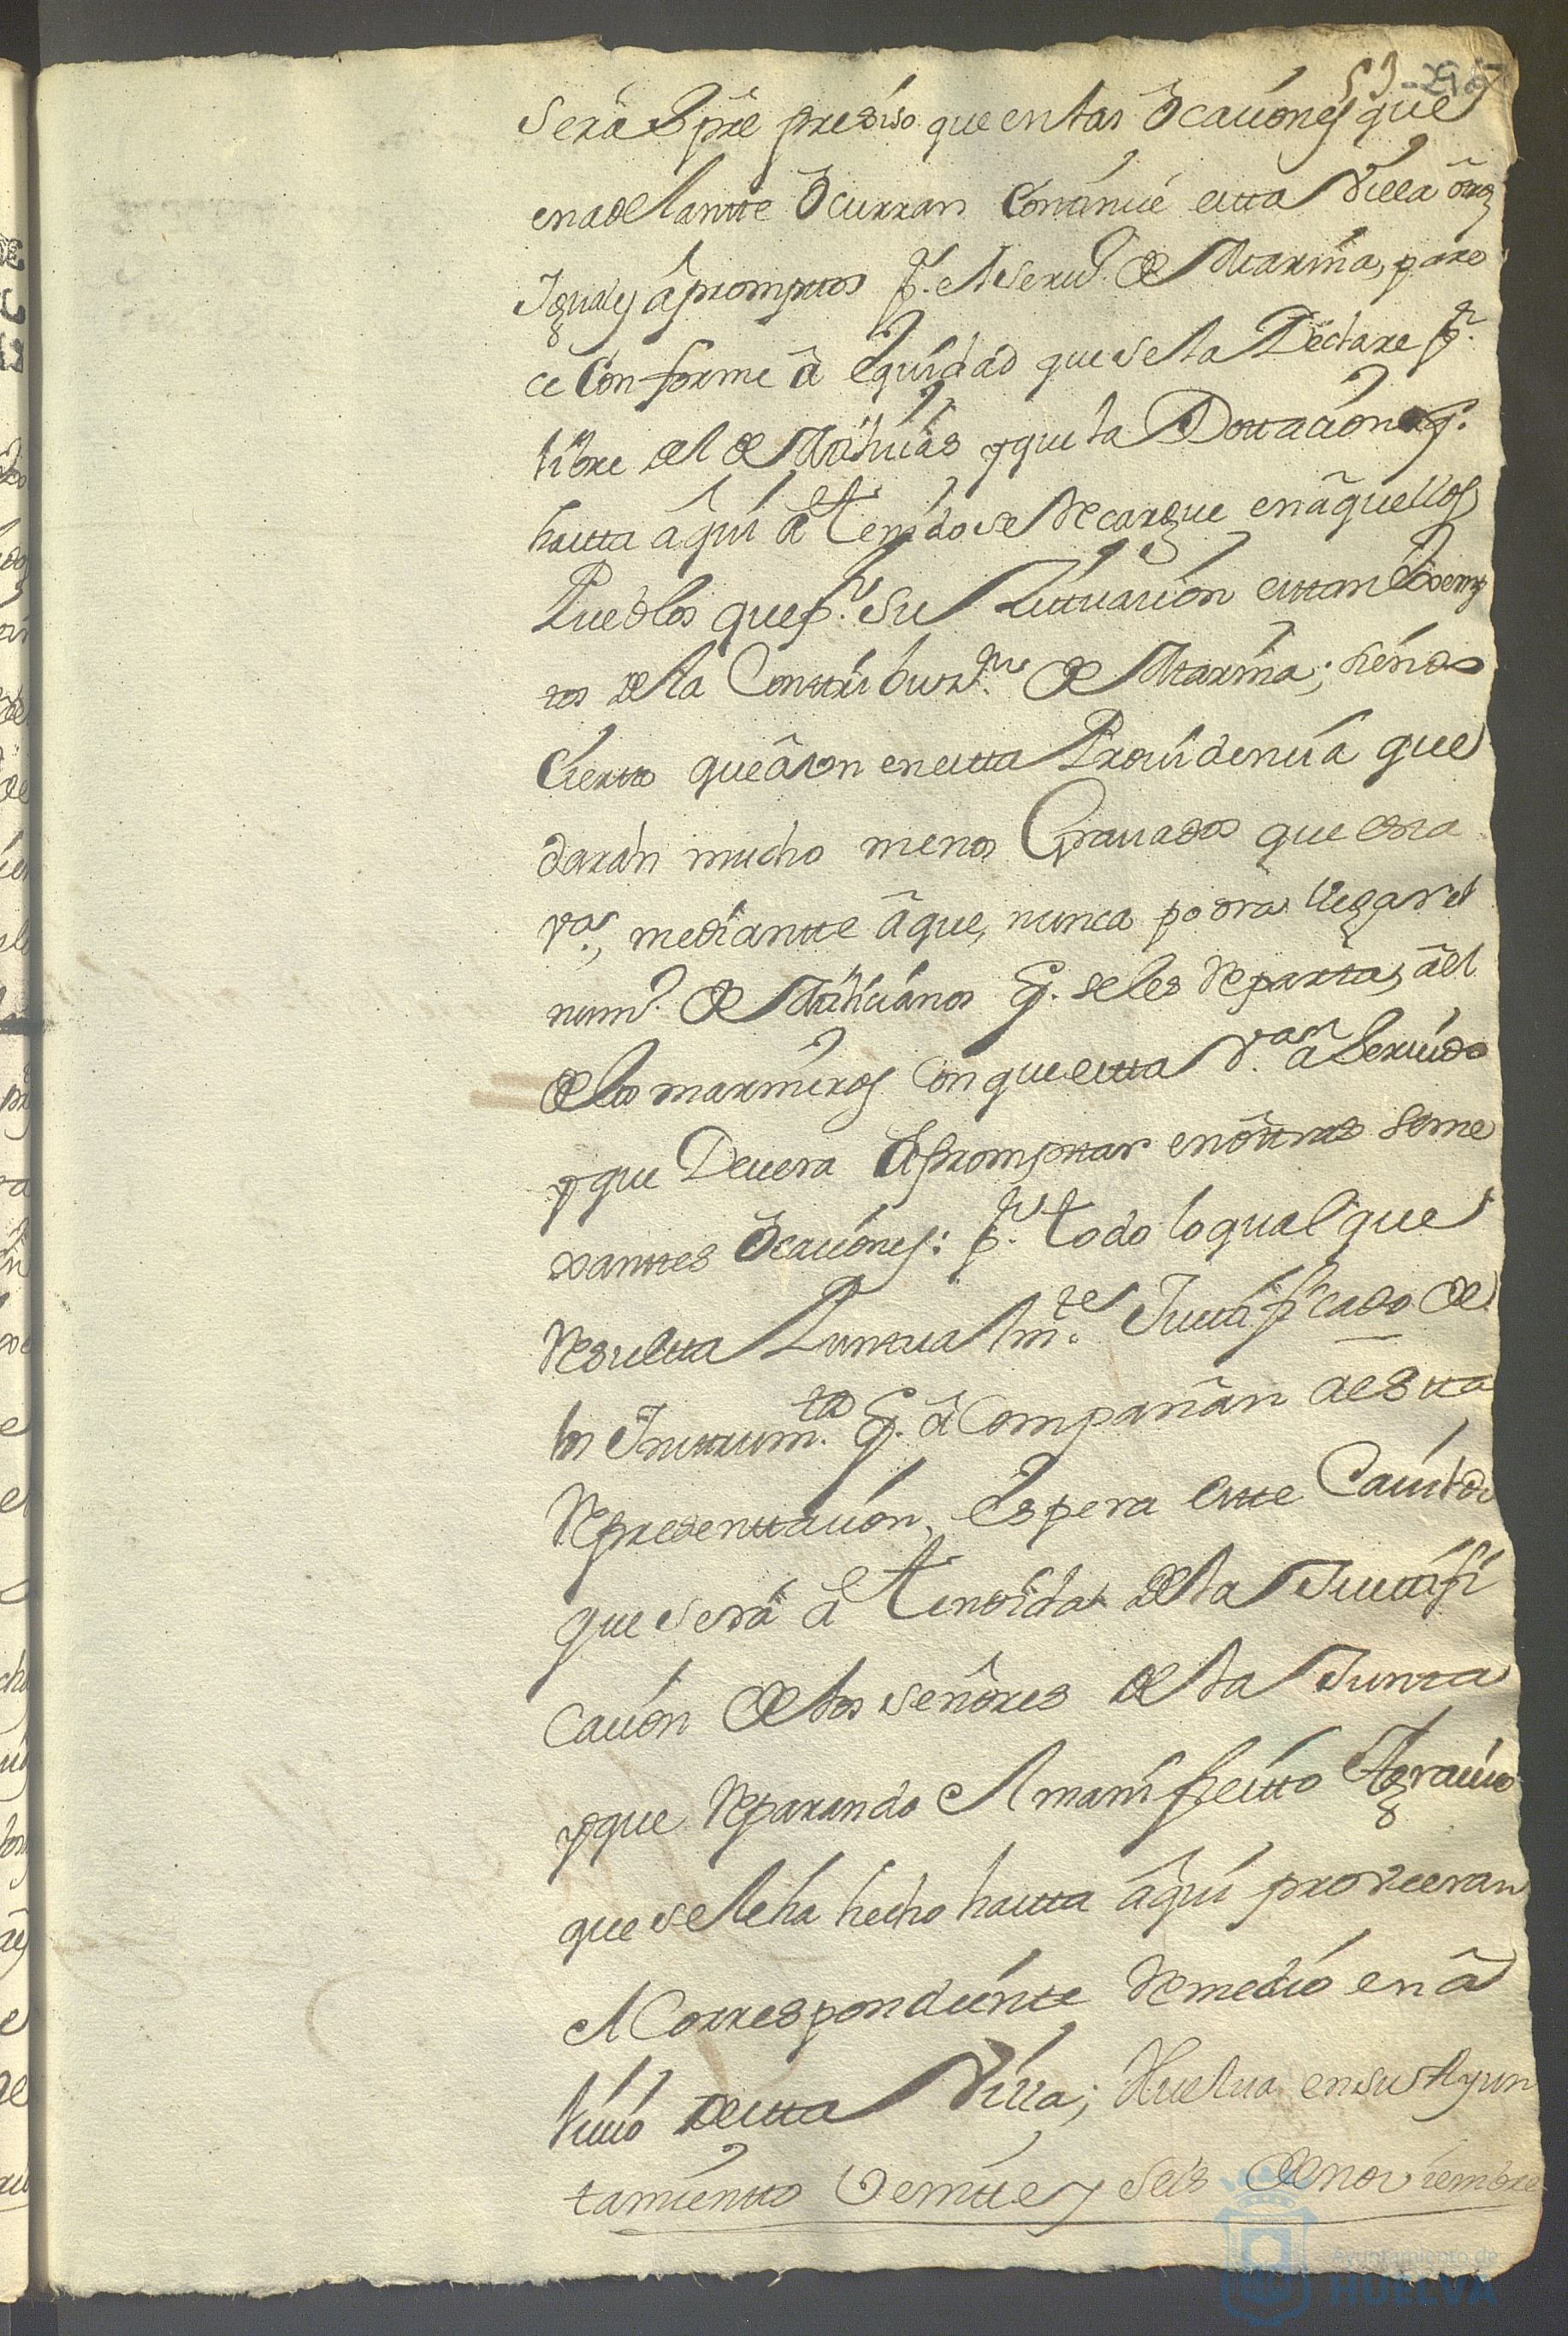 53 -
será spre presiso que en las Ocaciones que
en adelantte Ocurran Continúe estta Villa otros
Iguales âpromptos pr. el seruo. de Marina, pare
ce Conforme â equidad que se la Declare pr.
libre del de Milicias y que la Dottacion q.
hastta âqui â tenido se Recargue en âquellos
Pueblos que pr. su Sittuacion esttan Esemp
tos de la Conttribuzn. de Marina; siendo
Ciertto que âvn en estta Prouidencia que
darán mucho menos Grauados que esta
va., mediantte âque, nunca podrá llegar el
numo. de Milicianos q. se les Repartta, âel
de los marineros Con que estta Va. â Seruido
y que Deuera Apromptar en ôttras seme
xanttes Ocaciones: pr. todo lo qual que
Resultta Puntualmte. Justtificado de
los Insttrumtos. q. âCompañan â estta
Representtacion, espera estte Cauildo
que será âtendida de la Justtifi
cación de los señores de la Juntta
y que Reparando el manifiestto Agrauio
que se le ha hecho hastta âqui proveeran
el Correspondiente Remedio en â
liuio de estta Villa; Huelua en su Ayun
tamientto Veintte y seis de noviembre
Ayuntamiento de
HUELVA